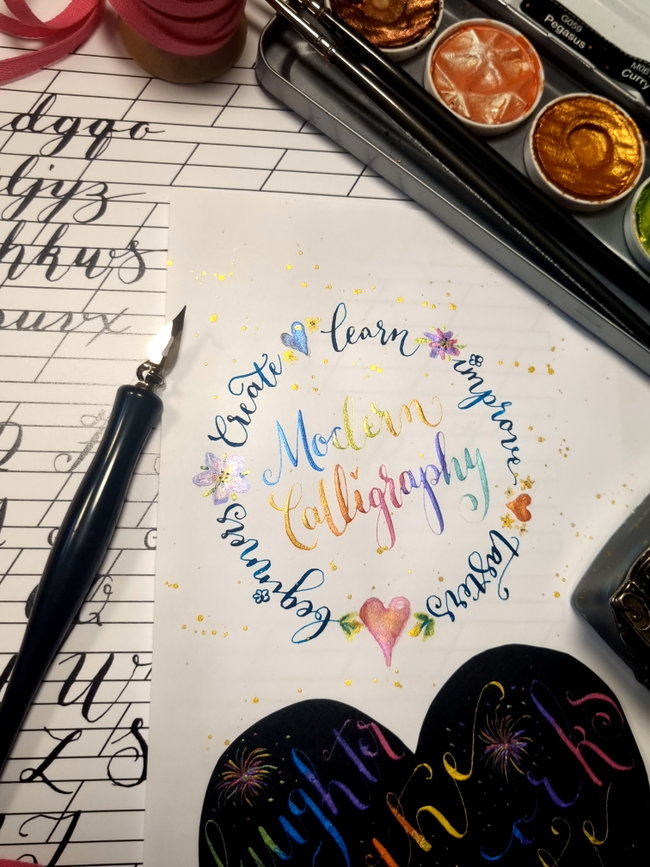 G059
Pegasus
M06
Curry
dgqo
jyz
hkws
uvx
Create
learn
improve
tasters
beginners
Modern
Calligraphy
laughter
the